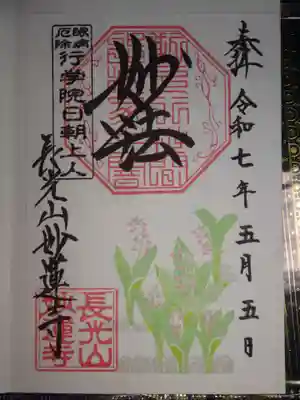 奉拝
令和七年五月五日
妙法
眼病
厄除
行学院日朝上人
長光山妙蓮寺
長光山
妙蓮寺